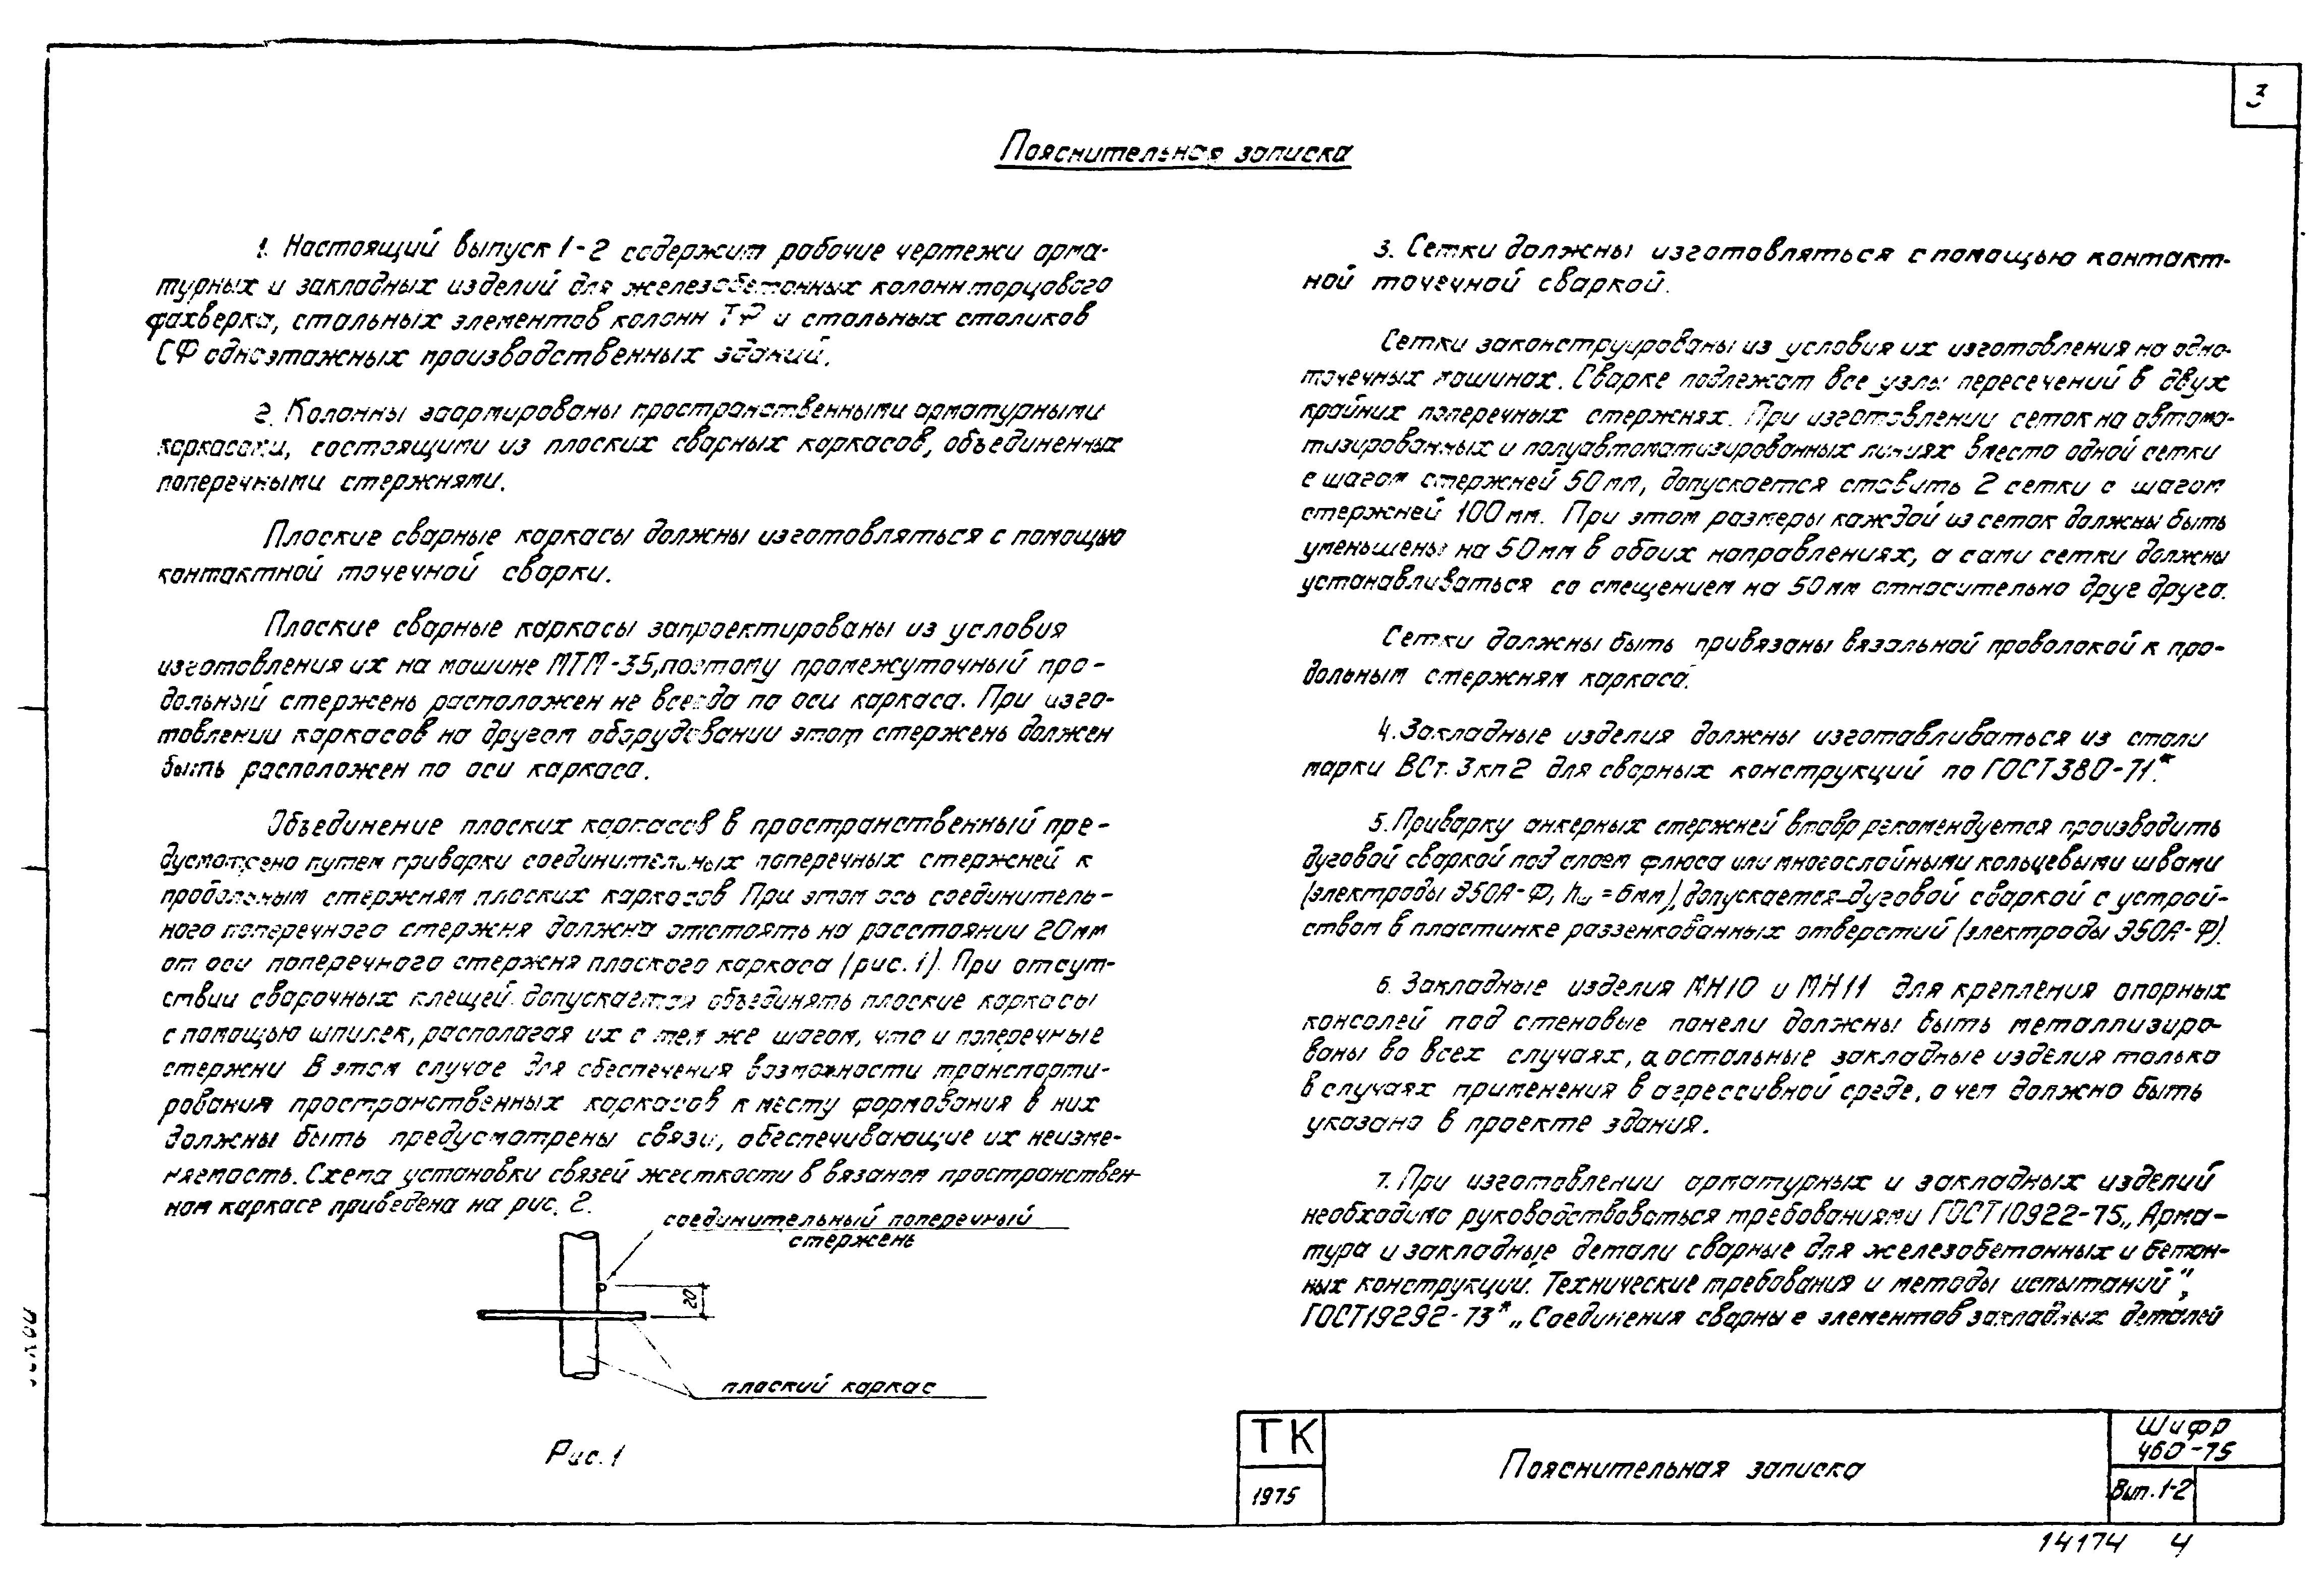 3
Пояснительная записка
1. Настоящий выпуск 1-2 содержит рабочие чертежи арма-
турных и закладных изделий для железобетонных колонн торцового
фахверка, стальных элементов колонн ТФ и стальных столиков
СФ одноэтажных производственных зданий.
2. Колонны заармированы пространственными арматурными
каркасами, состоящими из плоских сварных каркасов, объединенных
поперечными стержнями.
Плоские сварные каркасы должны изготовляться с помощью
контактной точечной сварки.
Плоские сварные каркасы запроектированы из условия
изготовления их на машине МТМ-35, поэтому промежуточный про-
дольный стержень расположен не всегда по оси каркаса. При изго-
товлении каркасов на другом оборудовании этот стержень должен
быть расположен по оси каркаса.
Объединение плоских каркасов в пространственный пре-
дусмотрено путем приварки соединительных поперечных стержней к
продольным стержням плоских каркасов При этом ось соединитель-
ного поперечного стержня должна отстоять на расстоянии 20мм
от оси поперечного стержня плоского каркаса (рис. 1). При отсут-
ствии сварочных клещей допускается объединять плоские каркасы
с помощью шпилек, располагая их с тем же шагом, что и поперечные
стержни В этом случае для обеспечения возможности транспорти-
рования пространственных каркасов к месту формования в них
должны быть предусмотрены связи, обеспечивающие их неизме-
няемость. Схема установки связей жесткости в вязаном пространствен-
ном каркасе приведена на рис. 2.
соединительный поперечный
стержень
20
плоский каркас
Рис. 1
3. Сетки должны изготовляться с помощью контакт-
ной точечной сваркой.
Сетки законструированы из условия их изготовления на одно-
точечных машинах. Сварке подлежат все узлы пересечений в двух
крайних поперечных стержнях. При изготовлении сеток на автома-
тизированных и полуавтоматизированных линиях вместо одной сетки
с шагом стержней 50мм, допускается ставить 2 сетки с шагом
стержней 100мм. При этом размеры каждой из сеток должны быть
уменьшены на 50мм в обоих направлениях, а сами сетки должны
устанавливаться со смещением на 50мм относительно друг друга.
Сетки должны быть привязаны вязальной проволокой к про-
дольным стержням каркаса.
4. Закладные изделия должны изготавливаться из стали
марки ВСт. 3кп2 для сварных конструкций по ГОСТ 380-71*.
5. Приварку анкерных стержней втавр рекомендуется производить
дуговой сваркой под слоем флюса или многослойными кольцевыми швами
(электроды Э50А-Ф, hш = 6мм), допускается дуговой сваркой с устрой-
ством в пластинке раззенкованных отверстий (электроды Э50А-Ф).
6. Закладные изделия МН10 и МН11 для крепления опорных
консолей под стеновые панели должны быть металлизиро-
ваны во всех случаях, а остальные закладные изделия только
в случаях применения в агрессивной среде, о чем должно быть
указано в проекте здания.
7. При изготовлении арматурных и закладных изделий
необходимо руководствоваться требованиями ГОСТ 10922-75 „Арма-
тура и закладные детали сварные для железобетонных и бетон-
ных конструкций. Технические требования и методы испытаний",
ГОСТ 19292-73* „Соединения сварные элементов закладных деталей
ТК
1975
Пояснительная записка
Шифр
460-75
Вып. 1-2
14174 4